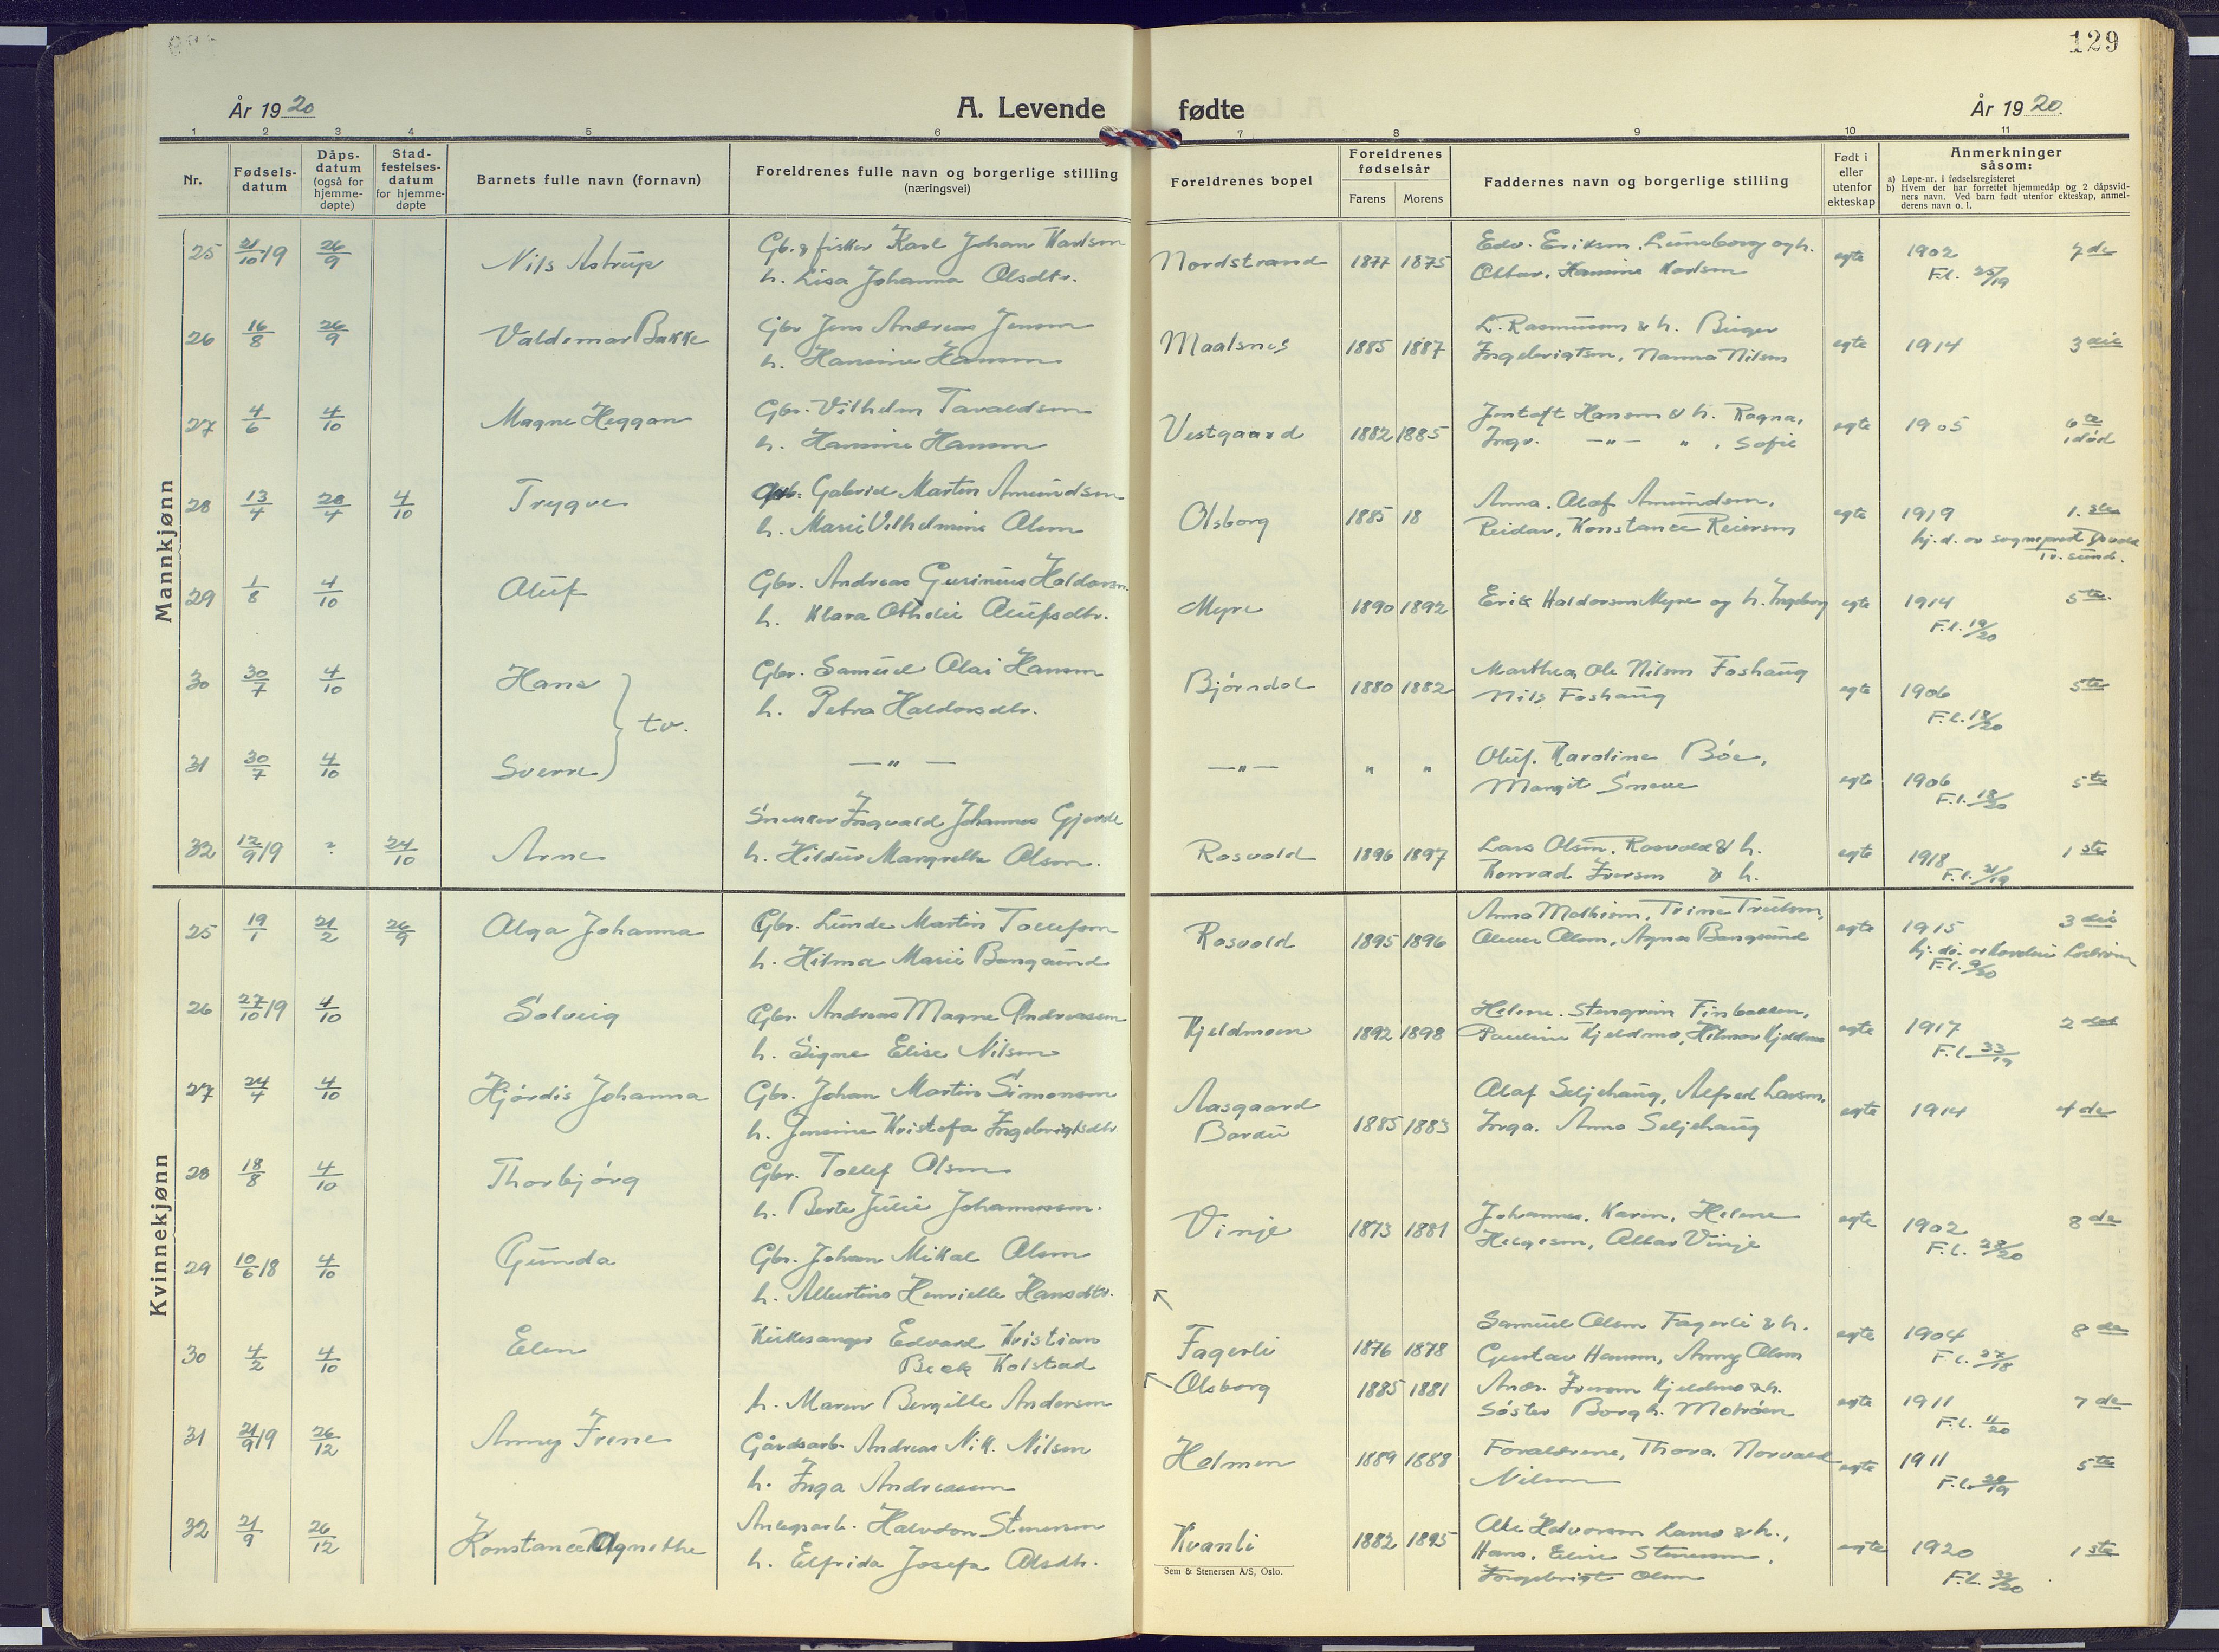 129
År 1920
A. Levende fødte
År 1920.
1 2 3 4 5 6 7 8 9 10 11
Nr.
Fødsels-
datum
Dåps-
datum
(også for
hjemme-
døpte)
Stad-
festelses-
datum
for hjemme-
døpte
Barnets fulle navn (fornavn)
Foreldrenes fulle navn og borgerlige stilling
(næringsvei)
Foreldrenes bopel
Foreldrenes
fødselsår
Farens Morens
Faddernes navn og borgerlige stilling
Født i
eller
utenfor
ekteskap
Anmerkninger
såsom:
a) Løpe-nr. i fødselsregisteret
b) Hvem der har forrettet hjemmedåp og 2 dåpsvid-
ners navn. Ved barn født utenfor ekteskap, anmel-
derens navn o. l.
Mannkjønn
25 21/10 19 26/9 Nils Astrup Gb. & fisker Karl Johan Karlsen
h. Lisa Johanna Olsdtr.
Nordstrand 1877 1875 Edv. Eriksen, Luneborg og h.
Ottar, Hansine Karlsen
egte 1902 7de
F.l. 25/19
26 16/8 26/9 Valdemar Bakke Gbr Jens Andreas Jensen
h. Hansine Hansen
Maalsnes 1885 1887 L. Rasmussen & h. Birger
Ingebrigtsen, Nanna Nilsen
egte 1914 3die
27 4/6 4/10 Magne Heggan Gbr. Vilhelm Tavaldsen
h. Hansine Hansen
Vestgaard 1882 1885 Jentoft Hansen & h. Ragna,
Ingv. —"— " , Sofie
egte 1905 6te
1 død
28 13/4 28/4 4/10 Trygve Gabriel Martin Amundsen
h. Marie Vilhelmine Olsen
Olsborg 1885 18 Anna. Olaf Amundsen,
Reidar, Konstance Reiersen
egte 1919 1.ste
hj.d. av sogneprest
Tr.sund.
29 1/8 4/10 Oluf Gbr. Andreas Gurinius Haldorsen
h. Klara Othelie Olufsdtr.
Myre 1890 1892 Erik Haldorsen Myre og h. Ingeborg egte 1914 5te.
F.l. 19/20
30 30/7 4/10 Hans Gbr. Samuel Olai Hansen
h. Petra Haldorsdtr.
tv.
Bjørndal 1880 1882 Marthea, Ole Nilsen Foshaug
Nils Foshaug
egte 1906 5te
F.l. 18/20
31 30/7 4/10 Sverre —"—
—"— " " Oluf. Karoline Bøe,
Margit Sneve
egte 1906 5te
F.l. 18/20
32 12/9 19 ? 24/10 Arne Snekker Ingvald Johannes Gjerde
h. Hildur Margrethe Olsen.
Rosvold 1896 1897 Lars Olsen, Rosvold & h.
Konrad Iversen & h.
egte 1918 1ste
F.l. 21/19
Kvinnekjønn
25 19/1 21/2 26/9 Olga Johanna Gbr. Lunde Martin Tollefsen
h. Hilma Marie Bangsund
Rosvold 1895 1896 Anna Mathisen, Trine Trulsen,
Oliver Olsen, Agnes Bangsund
egte 1915 3die
F.l. 9/20
26 27/10 19 4/10 Solveig Gbr. Andreas Magne Andreassen
h. Signe Elise Nilsen
Kjeldmoen 1892 1898 Helene. Stengrim Finbakken,
Pauline Kjeldmo, Hilmar Kjeldmo
egte 1917 2det
F.l. 33/19
27 24/4 4/10 Hjørdis Johanna Gbr. Johan Martin Simonsen
h. Jensine Kristofa Ingebrigtsdtr
Aasgaard
Bardu
1885 1883 Olaf Seljehaug, Alfred Larsen,
Inga. Anna Seljehaug
egte 1914 4de
28 18/8 4/10 Thorbjørg Gbr. Tollef Olsen
h. Berte Julie Johannessen.
Vinje 1873 1881 Johannes. Karen, Helene
Helgesen, Ottar Vinje
egte 1902 8de
F.l. 28/20
29 10/6 18 4/10 Gunda Gbr. Johan Mikal Olsen
h. Albertine Henrielle Hansdtr.
Fagerli 1876 1878 Samuel Olsen Fagerli & h.
Gustav Hansen, Anny Olsen
egte 1904 8de
F.l. 27/18
30 4/2 4/10 Elen Kirkesanger Edvard Kristian
Beck Kolstad
h. Maren Bergitte Andersen
Olsborg 1885 1881 Andr. Iversen Kjeldmo & h.
Søster Borgh. Mohrsen
egte 1911 7de
F.l. 11/20
31 21/9 19 26/12 Anny Irene Gårdsarb. Andreas Nik. Nilsen
h. Inga Andreassen
Holmen 1889 1888 Forældrene, Thora. Norvald
Nilsen
egte 1911 5te
F.l. 28/19
32 21/9 26/12 Konstance Agnethe Anlegsarb. Halvdan Stenersen
h. Elfrida Josefa Olsdtr.
Kvanli 1882 1895 Ole Halvorsen Lamo & h.,
Hans, Eline Stenersen,
Ingebrigt Olsen
egte 1920 1ste
F.l. 32/20
Sem & Stenersen A/S, Oslo.